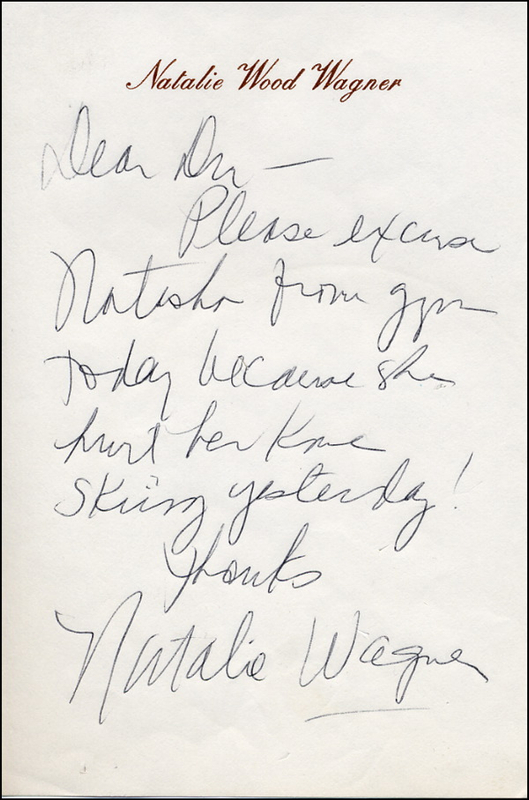 Natalie Wood Wagner
Dear Dru —
Please excuse
Natasha from gym
today because she
hurt her knee
skiing yesterday!
Thanks
Natalie Wagner